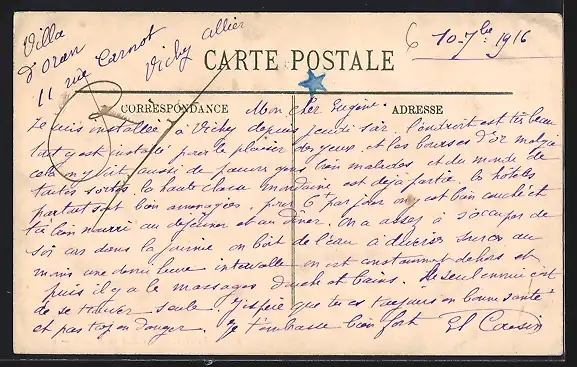 Villa
d'oran
11 rue Carnot
Vichy allier
10-7bre 1916
CARTE POSTALE
CORRESPONDANCE
ADRESSE
Mon cher Eugène.
Je suis installée à Vichy depuis jeudi soir l'endroit est très beau
tout y est installé pour le plaisir des yeux. et les bourses d'or malgré
cela on y voit aussi de pauvres gens bien malades et du monde de
toutes sortes. la haute classe mondaine est déjà partie. les hotels
partout sont bien aménagées, pour 6f par jour on est bien couché et
très bien nourri au déjeuner et au diner. on a assez à s'occuper de
soi car dans la journée on boit de l'eau à diverses sources au
moins une demi heure intervalle on est constamment dehors et
puis il y a le massages douche et bains. le seul ennui est
de se trouver seule. J'espère que tu es toujours en bonne santé
et pas trop en danger. Je t'embrasse bien fort